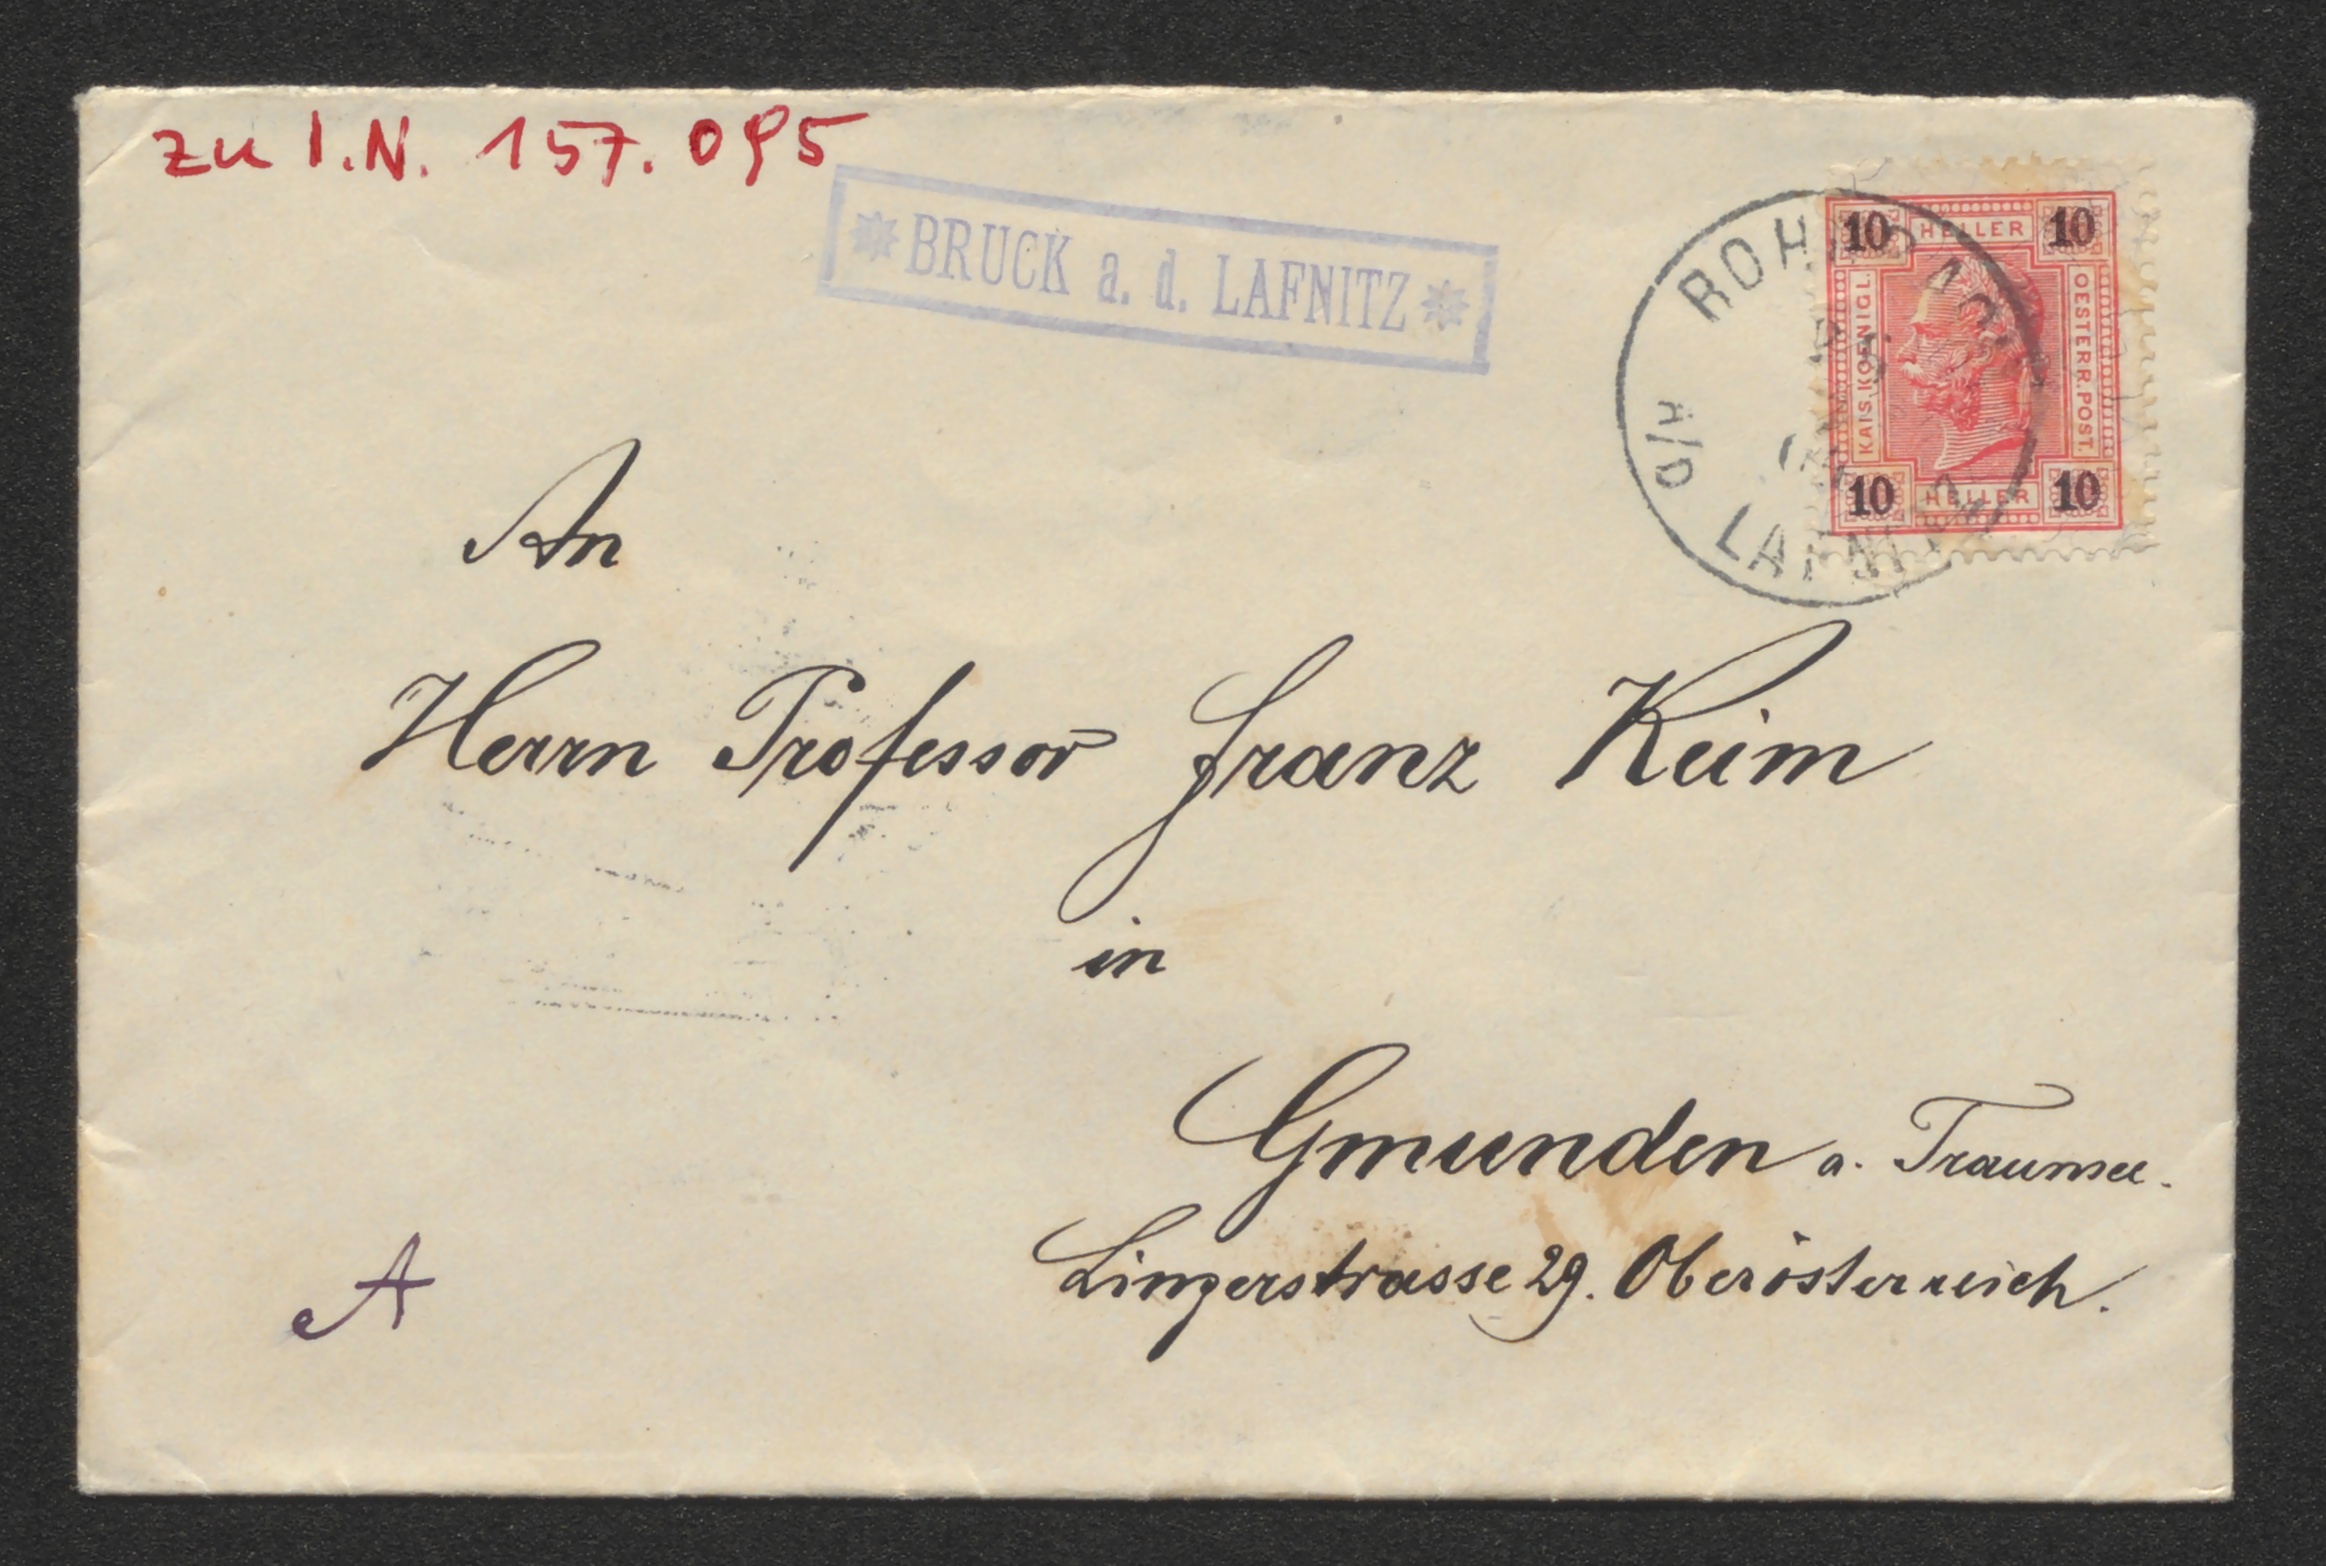 zu I.N. 157.095
* BRUCK a. d. LAFNITZ *
10 HELLER 10
KAIS. KOENIGL.
OESTERR. POST.
10 HELLER 10
A/D LAFNITZ
An
Herrn Professor Franz Keim
in
Gmunden a. Traunsee.
Linzerstrasse 29. Oberösterreich.
A